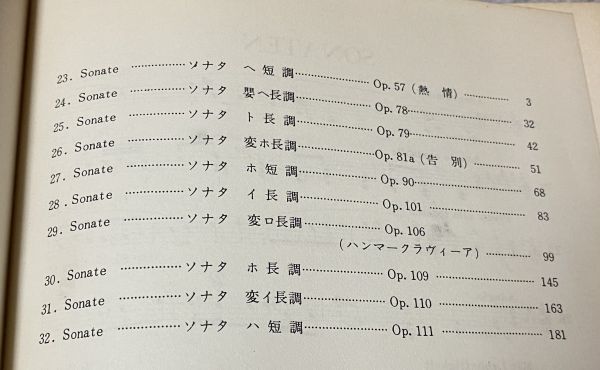 23. Sonate ……………… ソナタ ヘ 短 調 ……………………… Op. 57 (熱 情) …………… 3
24. Sonate ……………… ソナタ 嬰ヘ長調 ……………………… Op. 78 ……………………… 32
25. Sonate ……………… ソナタ ト 長 調 ……………………… Op. 79 ……………………… 42
26. Sonate ……………… ソナタ 変ホ長調 ……………………… Op. 81a (告 別) …………… 51
27. Sonate ……………… ソナタ ホ 短 調 ……………………… Op. 90 ……………………… 68
28. Sonate ……………… ソナタ イ 長 調 ……………………… Op. 101 ……………………… 83
29. Sonate ……………… ソナタ 変ロ長調 ……………………… Op. 106
(ハンマークラヴィーア) …………… 99
30. Sonate ……………… ソナタ ホ 長 調 ……………………… Op. 109 ……………………… 145
31. Sonate ……………… ソナタ 変イ長調 ……………………… Op. 110 ……………………… 163
32. Sonate ……………… ソナタ ハ 短 調 ……………………… Op. 111 ……………………… 181